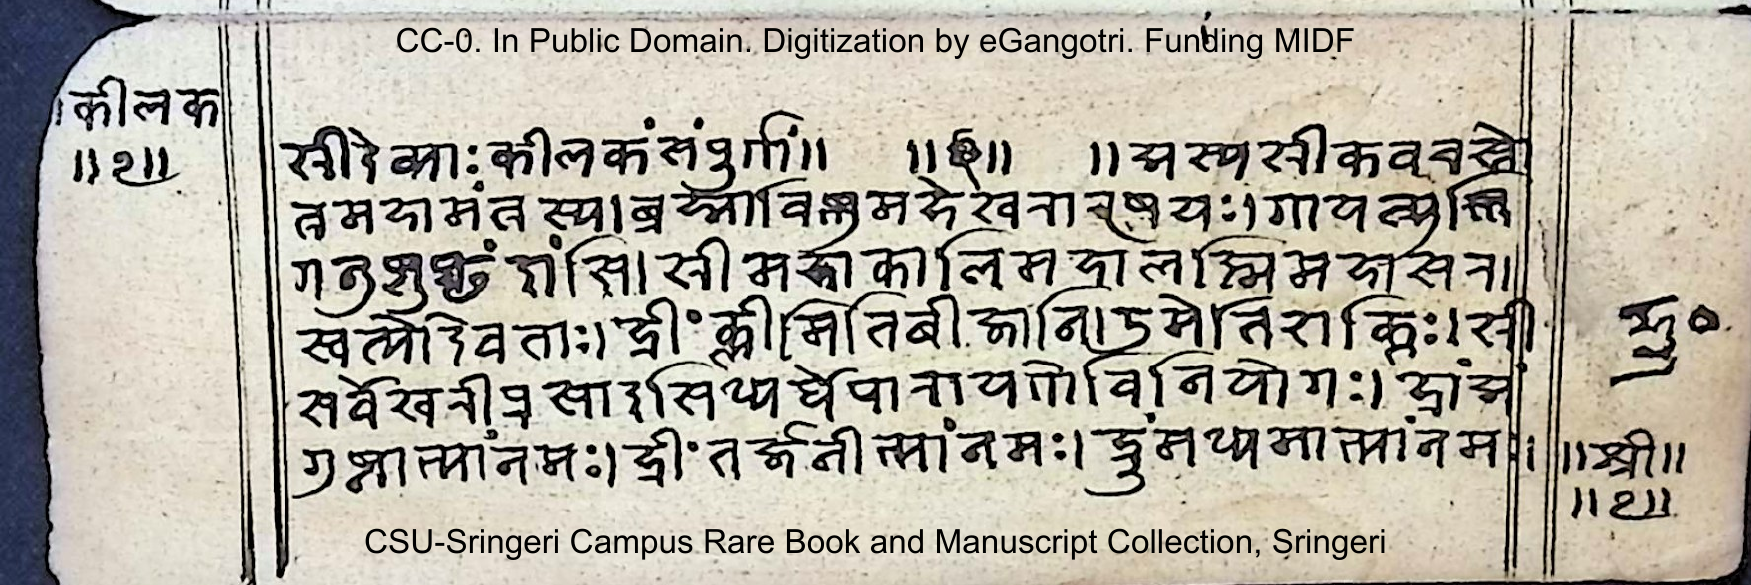 CC-0. In Public Domain. Digitization by eGangotri. Funding MIDF
कीलक
॥२॥
स्रीदेव्याः कीलकं संपुर्गां॥ ॥ ॥ ॥अस्य स्रीकवच
तमहामंत्रस्य।ब्रह्माविष्णुमहेस्वरा ऋषयः।गायत्र्युस्नि
स्रीमहाकालिमहालस्मिमहासर।
स्वत्योदेवताः।ह्रीं क्लीमितिबीजानि।उमेतिशक्तिः।स्री
सर्वेस्वरीप्रसादसिध्यर्थेपारायणेविनियोगः।ह्रांअं
गुष्ठाभ्यांनमः।ह्रीं तर्जनीभ्यांनमः।ह्रुंमध्यमाभ्यांनमः।
॥श्री॥
॥२॥
CSU-Sringeri Campus Rare Book and Manuscript Collection, Sringeri